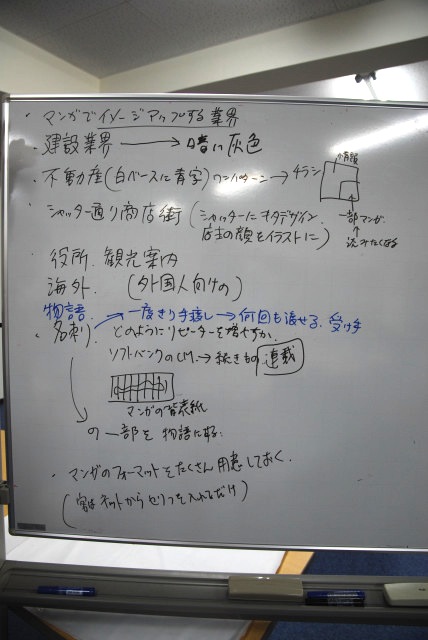 ・マンガでイメージアップする業界
・建設業界 → 暗い灰色
・不動産(白ベースに青字)ワンパターン → チラシ
情報
一部マンガ
↑
読みたくなる
・シャッター通り商店街(シャッターに デザイン
店主の顔をイラストに)
・役所、観光案内
海外、 (外国人向けの)
物語
・名刺 → 一度きり手渡し → 何回も渡せる、受け手
どのようにリピーターを増やすか、
ソフトバンクのCM → 続きもの 連載
マンガの背表紙
の一部を物語にする
・マンガのフォーマットをたくさん用意しておく。
(客はネットからセリフを入れるだけ)